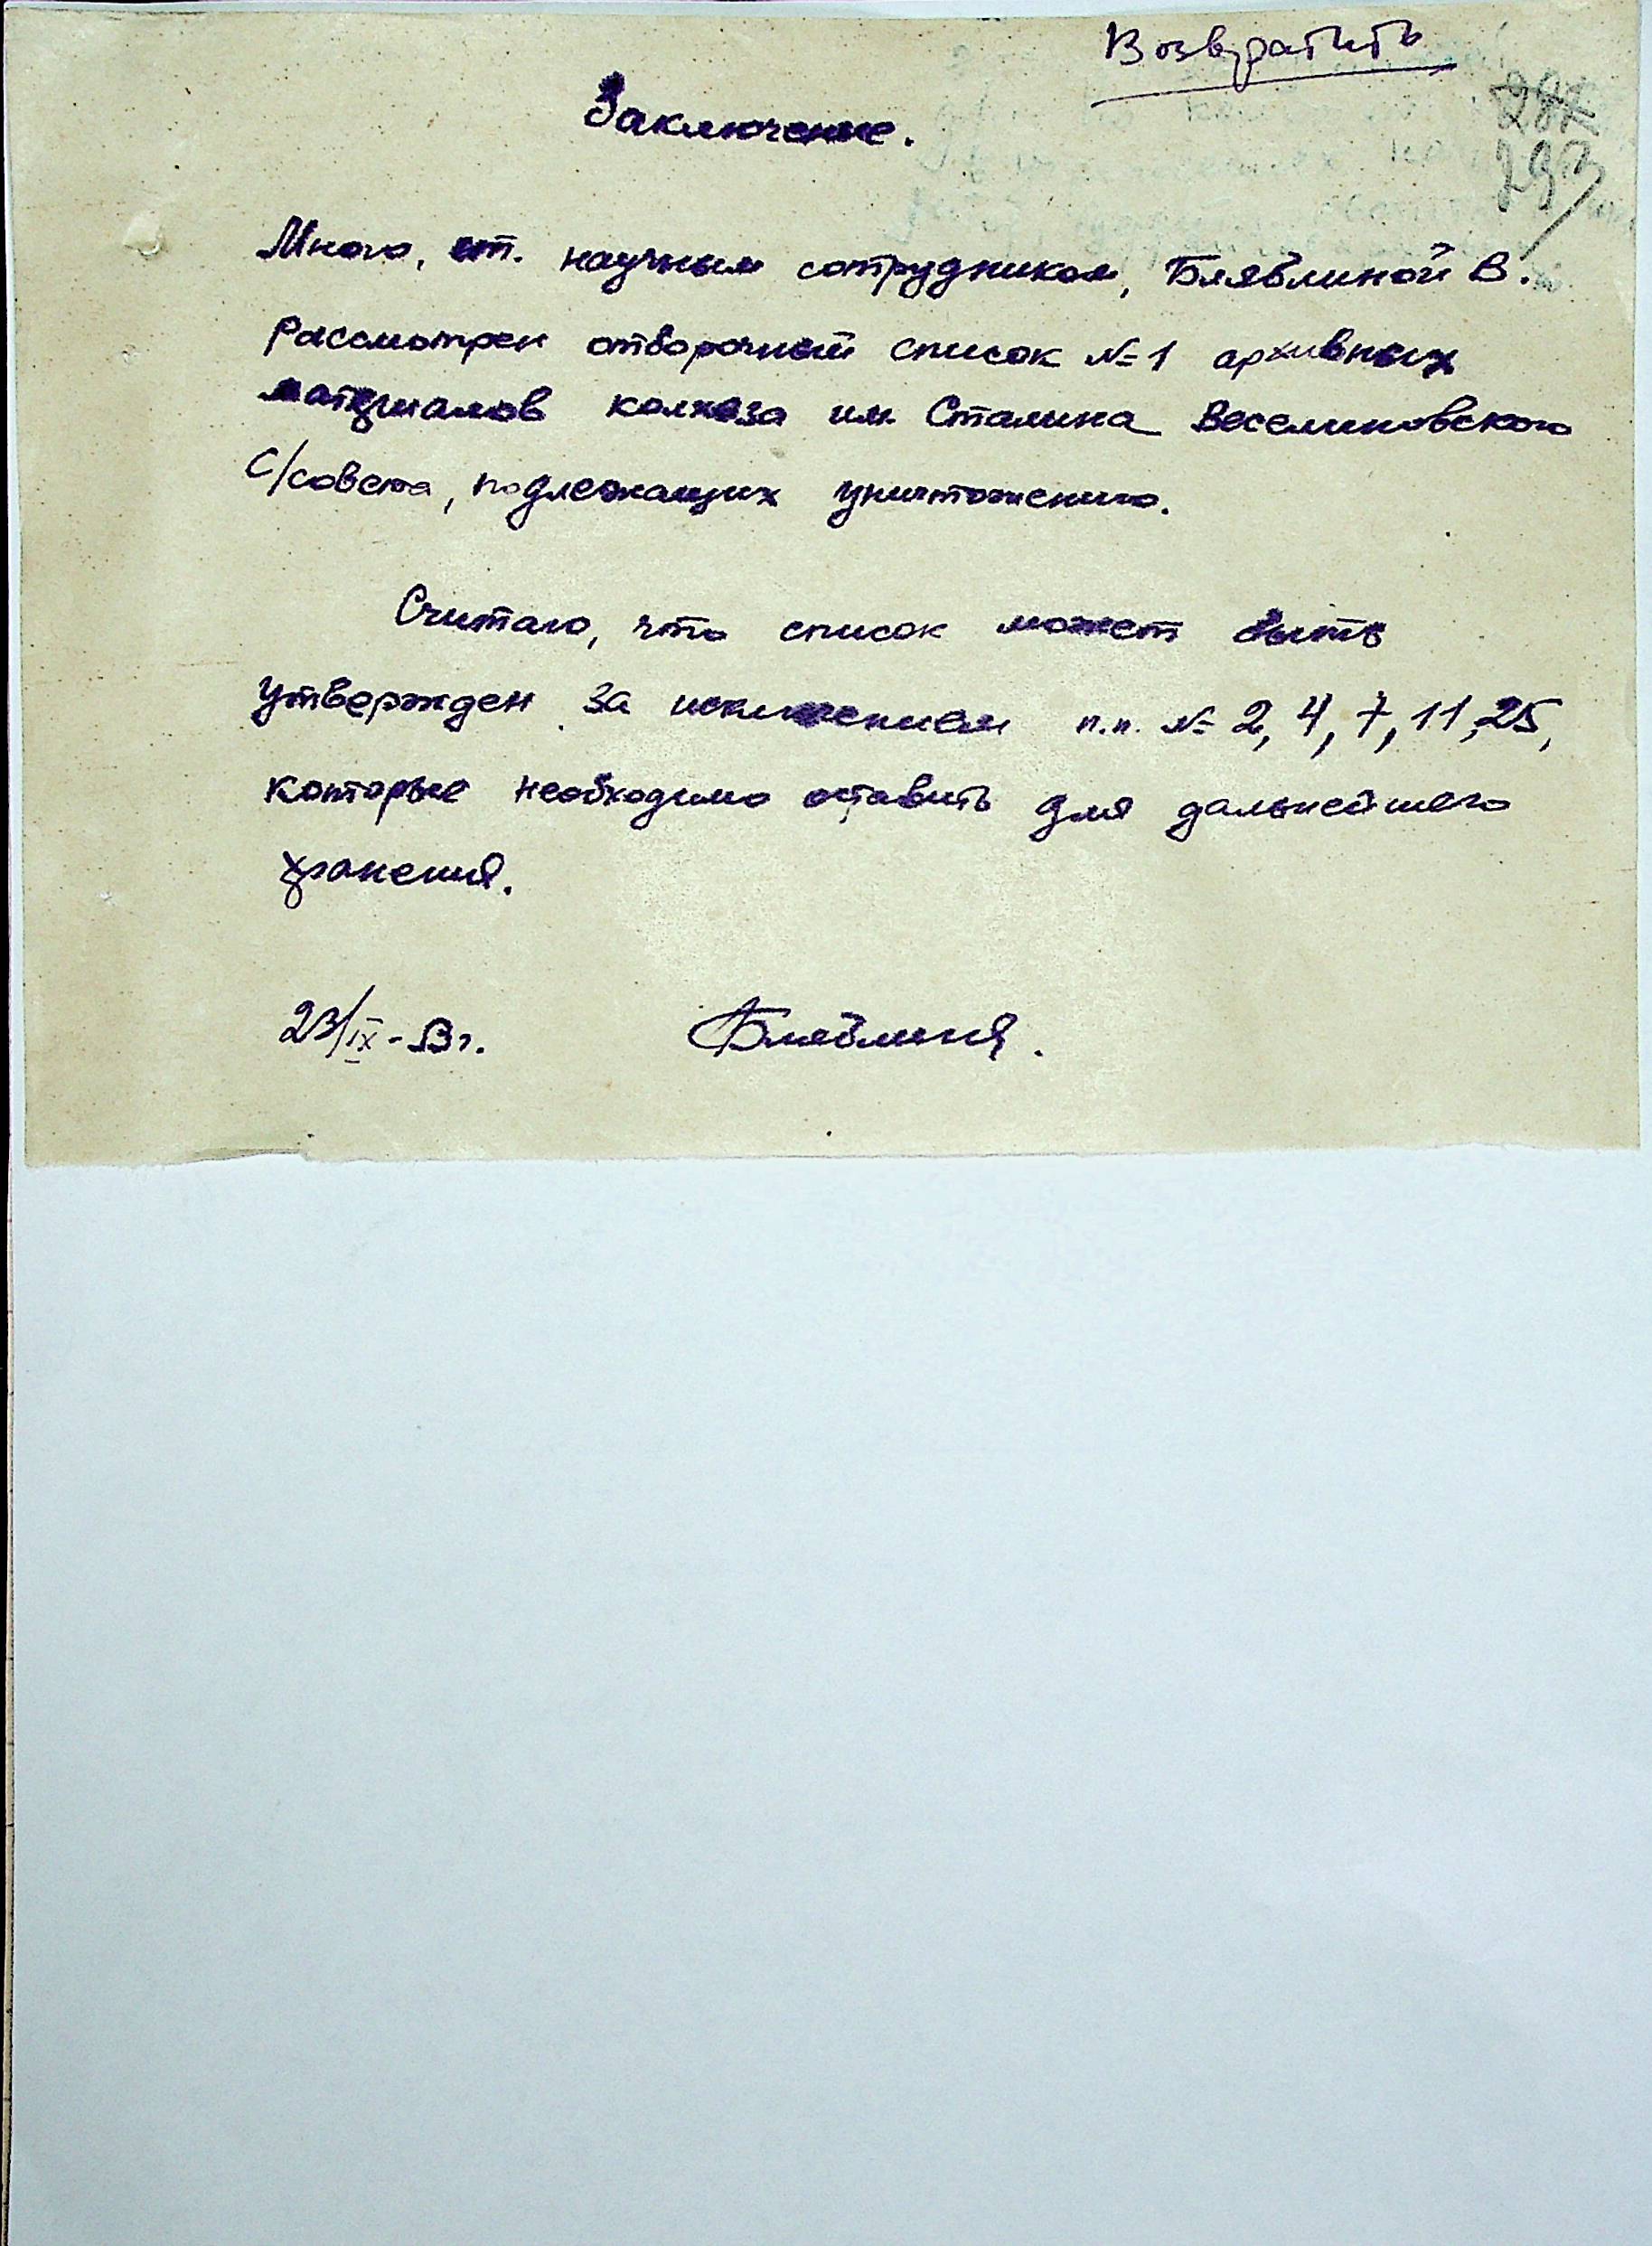 Возвратить
Заключение.
287
293
Мною, ст. научным сотрудником, Бляблиной В.
Рассмотрен отборочный список №1 архивных
материалов колхоза им. Сталина Веселиновского
С/совета, подлежащих уничтожению.
Считаю, что список может быть
утвержден за исключением п.п. № 2, 4, 7, 11, 25,
которые необходимо оставить для дальнейшего
хранения.
23/IX-53г. Бляблина.